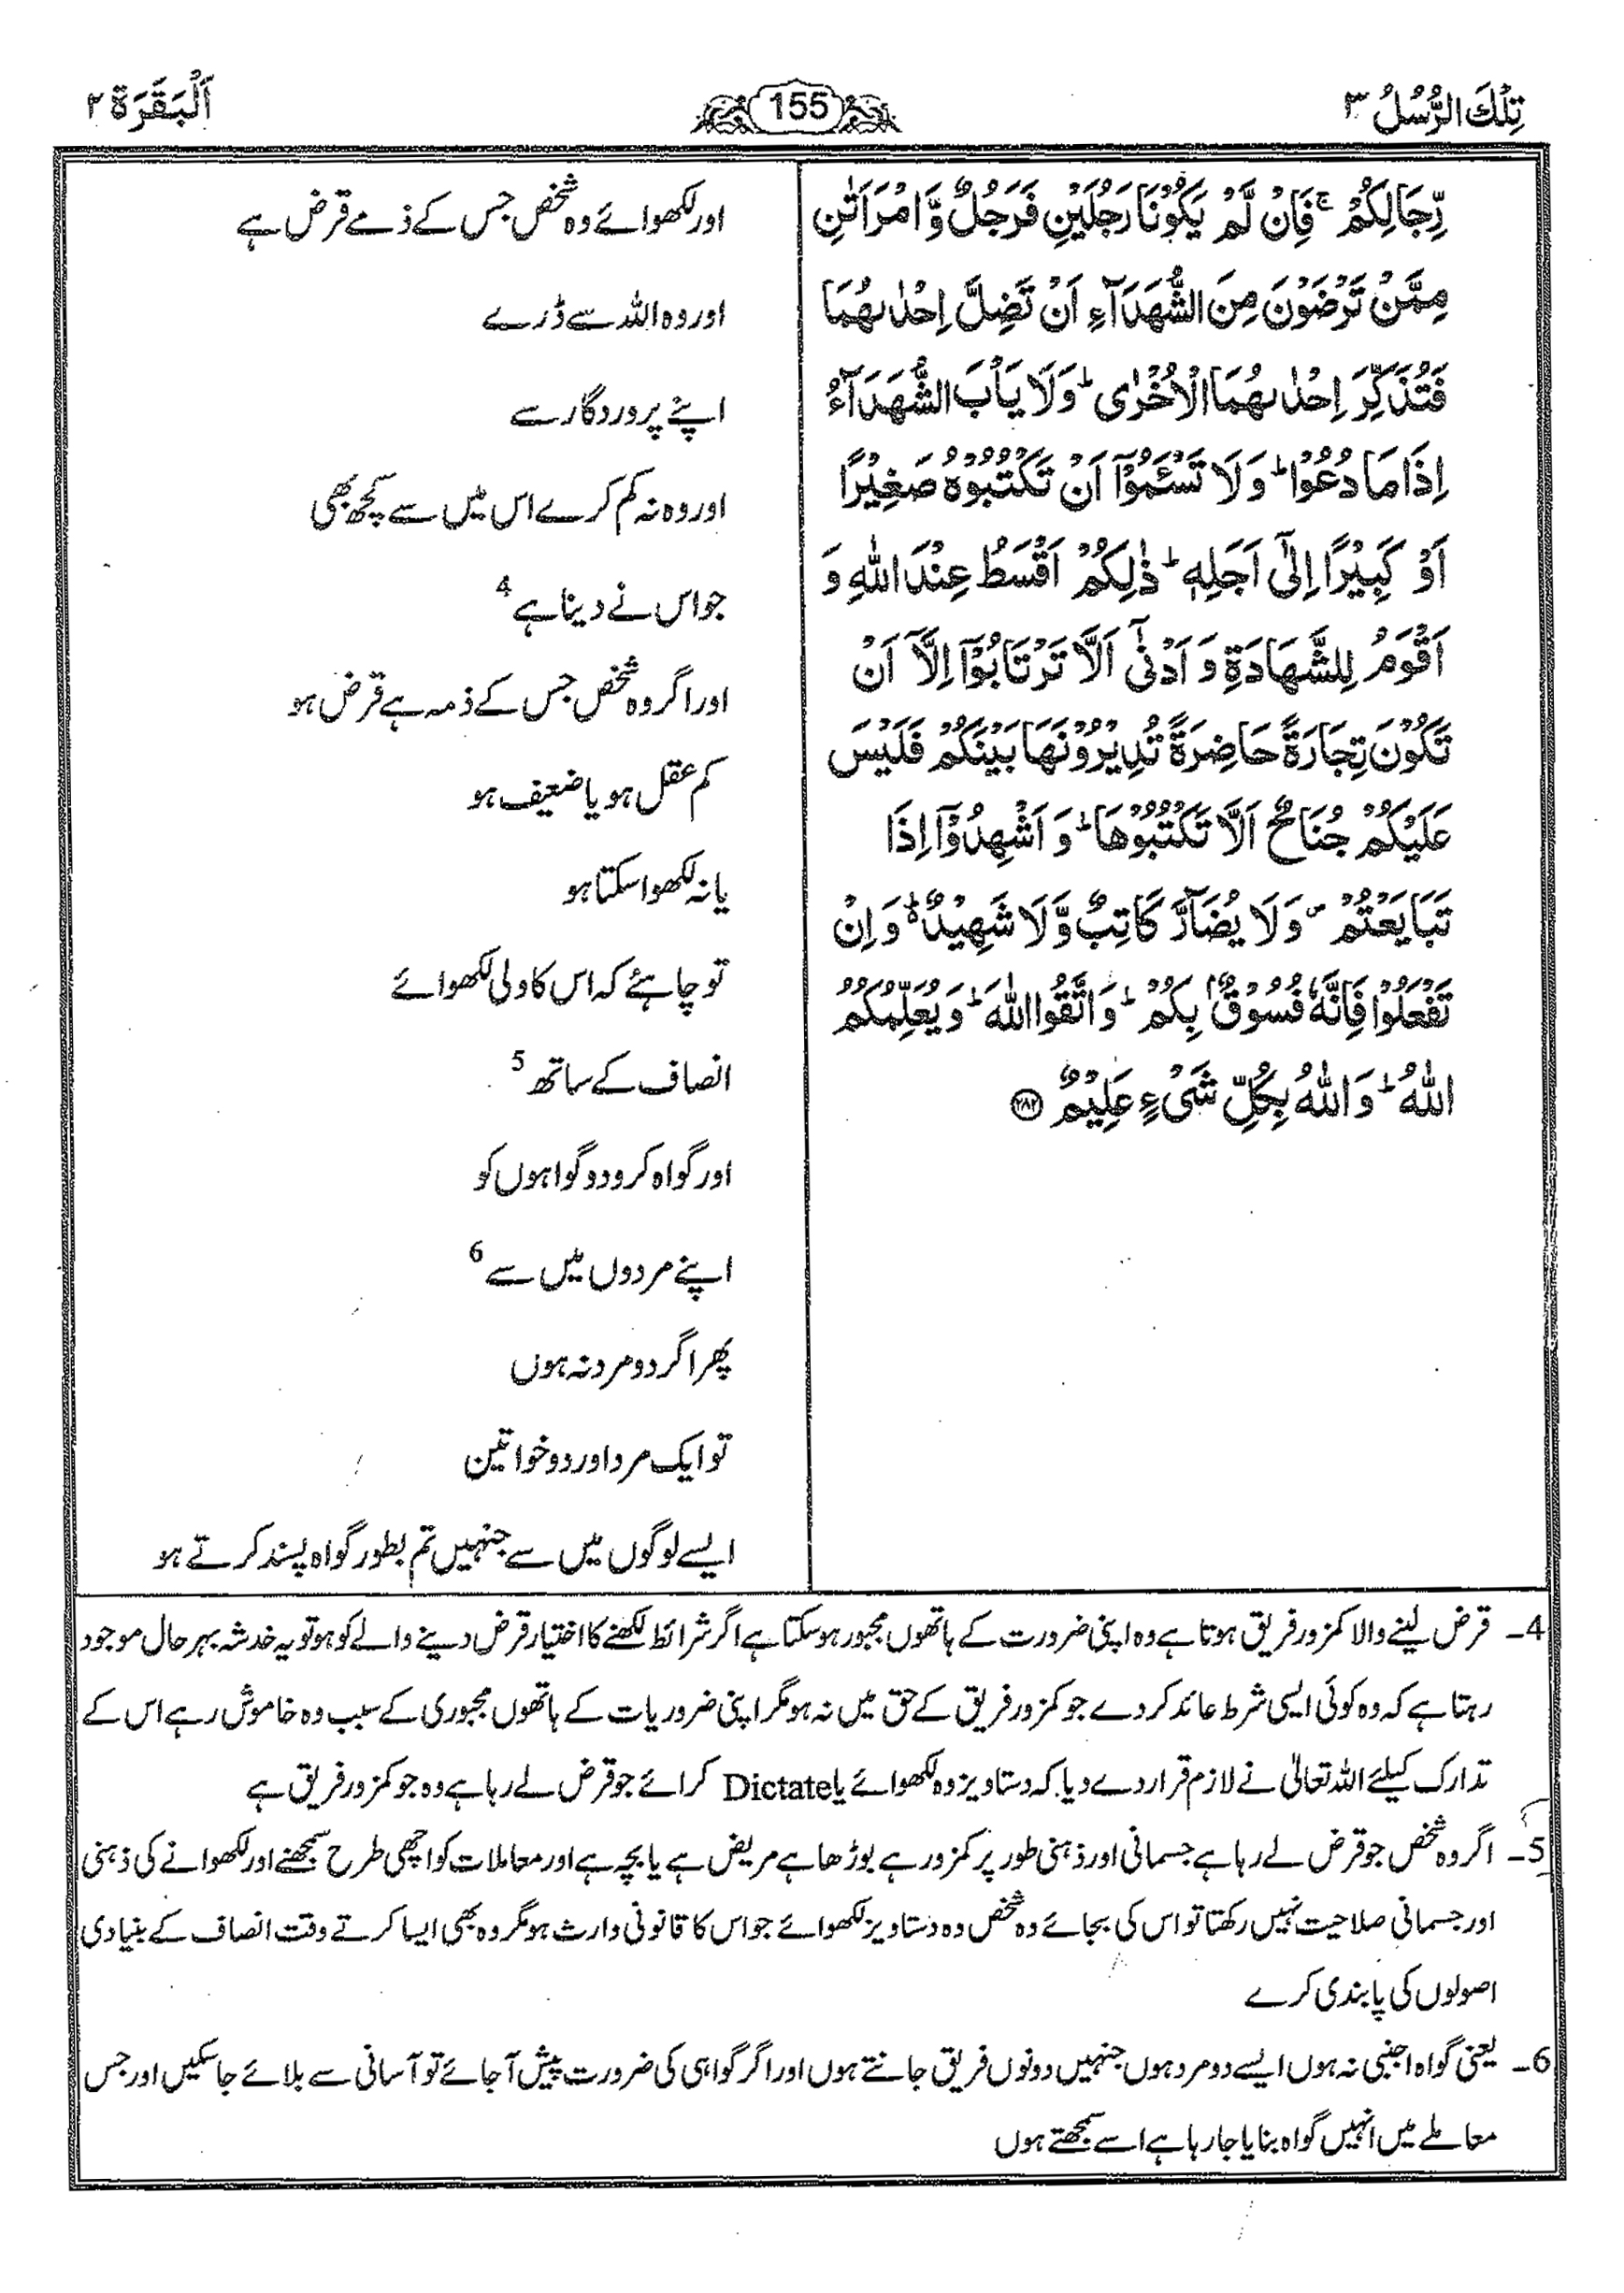 تِلْكَ الرُّسُلُ ۳
155
اَلْبَقَرَة ۲
رِّجَالِكُمْ ۚ فَاِنْ لَّمْ يَكُوْنَا رَجُلَيْنِ فَرَجُلٌ وَّ امْرَاَتٰنِ
مِمَّنْ تَرْضَوْنَ مِنَ الشُّهَدَآءِ اَنْ تَضِلَّ اِحْدٰىهُمَا
فَتُذَكِّرَ اِحْدٰىهُمَا الْاُخْرٰى ؕ وَلَا يَاْبَ الشُّهَدَآءُ
اِذَا مَا دُعُوْا ؕ وَلَا تَسْـَٔمُوْۤا اَنْ تَكْتُبُوْهُ صَغِيْرًا
اَوْ كَبِيْرًا اِلٰۤى اَجَلِهٖ ؕ ذٰلِكُمْ اَقْسَطُ عِنْدَ اللّٰهِ وَ
اَقْوَمُ لِلشَّهَادَةِ وَ اَدْنٰۤى اَلَّا تَرْتَابُوْۤا اِلَّاۤ اَنْ
تَكُوْنَ تِجَارَةً حَاضِرَةً تُدِيْرُوْنَهَا بَيْنَكُمْ فَلَيْسَ
عَلَيْكُمْ جُنَاحٌ اَلَّا تَكْتُبُوْهَا ؕ وَ اَشْهِدُوْۤا اِذَا
تَبَايَعْتُمْ ۪ وَلَا يُضَآرَّ كَاتِبٌ وَّلَا شَهِيْدٌ ؕ۬ وَ اِنْ
تَفْعَلُوْا فَاِنَّهٗ فُسُوْقٌۢ بِكُمْ ؕ وَ اتَّقُوا اللّٰهَ ؕ وَ يُعَلِّمُكُمُ
اللّٰهُ ؕ وَ اللّٰهُ بِكُلِّ شَىْءٍ عَلِيْمٌ ﴿۲۸۲﴾
اور لکھوائے وہ شخص جس کے ذمے قرض ہے
اور وہ اللہ سے ڈرے
اپنے پروردگار سے
اور وہ نہ کم کرے اس میں سے کچھ بھی
جو اس نے دینا ہے 4
اور اگر وہ شخص جس کے ذمہ ہے قرض ہو
کم عقل ہو یا ضعیف ہو
یا نہ لکھوا سکتا ہو
تو چاہئے کہ اس کا ولی لکھوائے
انصاف کے ساتھ 5
اور گواہ کرو دو گواہوں کو
اپنے مردوں میں سے 6
پھر اگر دو مرد نہ ہوں
تو ایک مرد اور دو خواتین
ایسے لوگوں میں سے جنہیں تم بطور گواہ پسند کرتے ہو
4۔ قرض لینے والا کمزور فریق ہوتا ہے وہ اپنی ضرورت کے ہاتھوں مجبور ہو سکتا ہے اگر شرائط لکھنے کا اختیار قرض دینے والے کو ہو تو یہ خدشہ بہرحال موجود
رہتا ہے کہ وہ کوئی ایسی شرط عائد کر دے جو کمزور فریق کے حق میں نہ ہو مگر اپنی ضروریات کے ہاتھوں مجبوری کے سبب وہ خاموش رہے اس کے
تدارک کیلئے اللہ تعالیٰ نے لازم قرار دے دیا کہ دستاویز وہ لکھوائے یا Dictate کرائے جو قرض لے رہا ہے وہ جو کمزور فریق ہے
5۔ اگر وہ شخص جو قرض لے رہا ہے جسمانی اور ذہنی طور پر کمزور ہے بوڑھا ہے مریض ہے یا بچہ ہے اور معاملات کو اچھی طرح سمجھنے اور لکھوانے کی ذہنی
اور جسمانی صلاحیت نہیں رکھتا تو اس کی بجائے وہ شخص وہ دستاویز لکھوائے جو اس کا قانونی وارث ہو مگر وہ بھی ایسا کرتے وقت انصاف کے بنیادی
اصولوں کی پابندی کرے
6۔ یعنی گواہ اجنبی نہ ہوں ایسے دو مرد ہوں جنہیں دونوں فریق جانتے ہوں اور اگر گواہی کی ضرورت پیش آ جائے تو آسانی سے بلائے جا سکیں اور جس
معاملے میں انہیں گواہ بنایا جا رہا ہے اسے سمجھتے ہوں